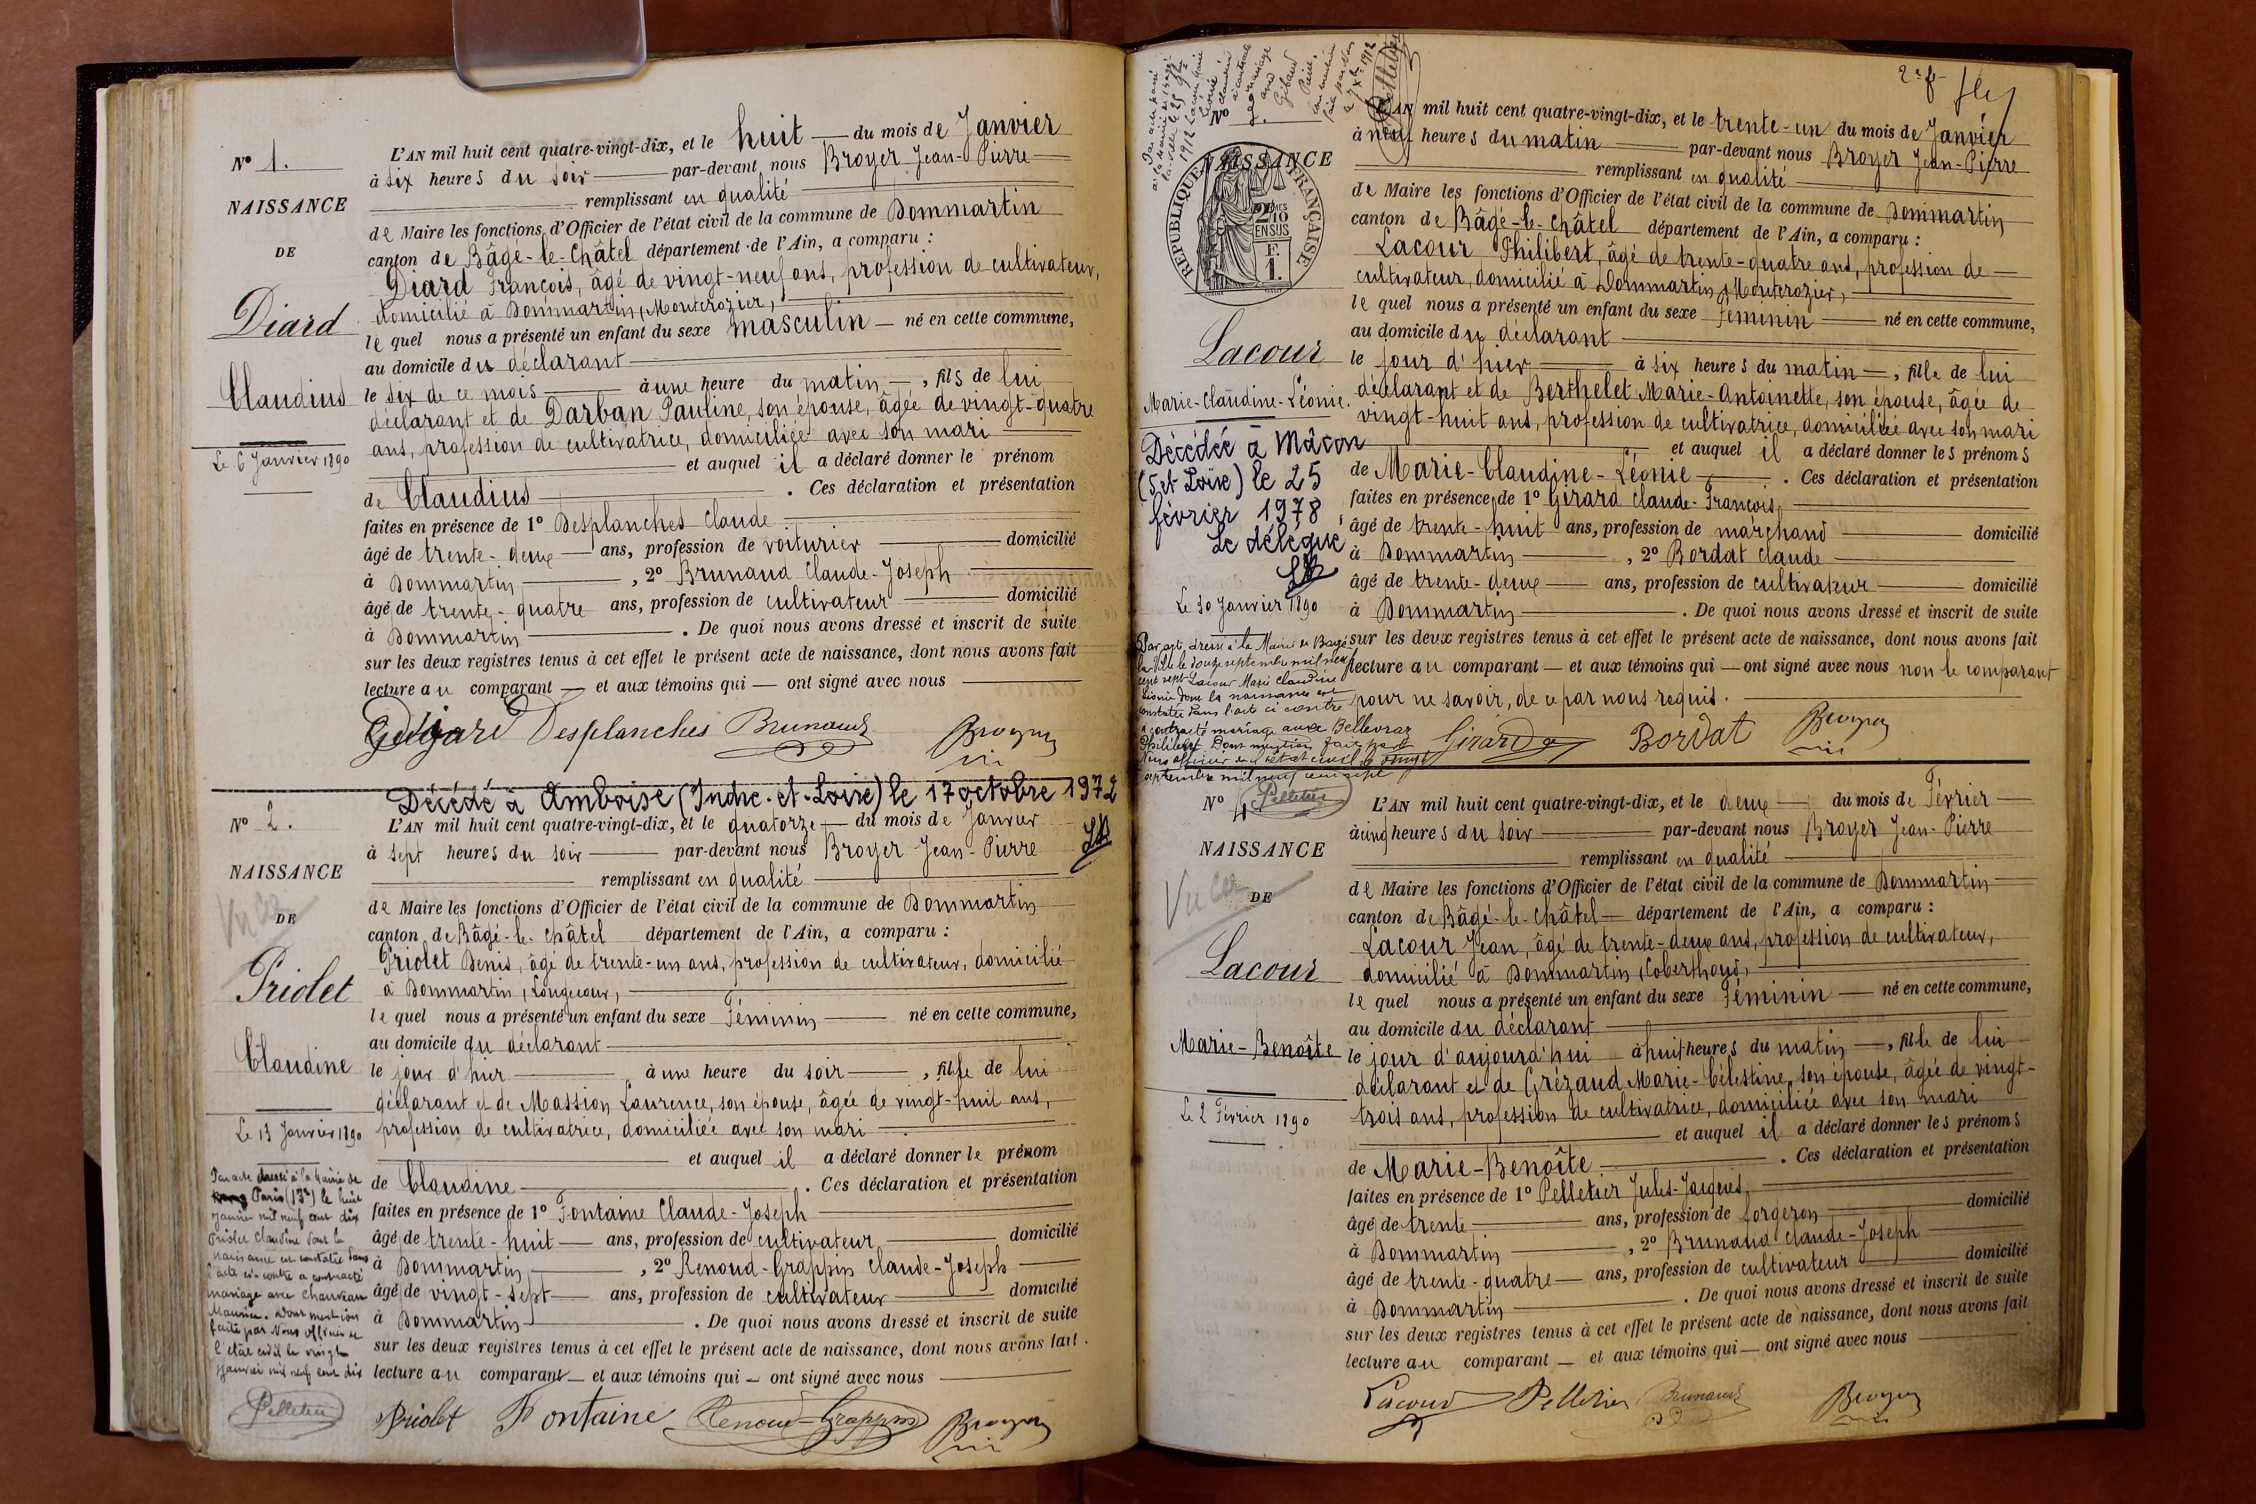 N° 1.
NAISSANCE
DE
Diard
Claudius
Le 6 Janvier 1890
L'AN mil huit cent quatre-vingt-dix, et le huit du mois de Janvier
à six heures du soir par-devant nous Broyer Jean-Pierre
remplissant en qualité
de Maire les fonctions d'Officier de l'état civil de la commune de Dommartin
canton de Bâgé-le-Châtel département de l'Ain, a comparu :
Diard François, âgé de vingt-neuf ans, profession de cultivateur,
domicilié à Dommartin, Montcrozier,
le quel nous a présenté un enfant du sexe masculin né en cette commune,
au domicile du déclarant
le six de ce mois à une heure du matin, fils de lui
déclarant et de Darban Pauline, son épouse, âgée de vingt-quatre
ans, profession de cultivatrice, domiciliée avec son mari
et auquel il a déclaré donner le prénom
de Claudius. Ces déclaration et présentation
faites en présence de 1° Desplanches Claude
âgé de trente-deux ans, profession de voiturier domicilié
à Dommartin, 2° Brunaud Claude-Joseph
âgé de trente-quatre ans, profession de cultivateur domicilié
à Dommartin. De quoi nous avons dressé et inscrit de suite
sur les deux registres tenus à cet effet le présent acte de naissance, dont nous avons fait
lecture au comparant et aux témoins qui ont signé avec nous
Desplanches Brunaud Broyer
Décédé à Amboise (Indre-et-Loire) le 17 octobre 1972
N° 2.
NAISSANCE
DE
Priolet
Claudine
Le 13 Janvier 1890
Par acte dressé à la Mairie de
Paris (13e) le huit
janvier mil neuf cent dix
Priolet Claudine dont la
naissance est constatée dans
l'acte ci-contre a contracté
mariage avec Chauveau
Maurice. Dont mention
faite par Nous officier de
l'état civil le vingt
janvier mil neuf cent dix
Pelletier
L'AN mil huit cent quatre-vingt-dix, et le quatorze du mois de Janvier
à sept heures du soir par-devant nous Broyer Jean-Pierre
remplissant en qualité
de Maire les fonctions d'Officier de l'état civil de la commune de Dommartin
canton de Bâgé-le-Châtel département de l'Ain, a comparu :
Priolet Denis, âgé de trente-un ans, profession de cultivateur, domicilié
à Dommartin, Longecour,
le quel nous a présenté un enfant du sexe Féminin né en cette commune,
au domicile du déclarant
le jour d'hier à une heure du soir, fille de lui
déclarant et de Massion Laurence, son épouse, âgée de vingt-huit ans,
profession de cultivatrice, domiciliée avec son mari
et auquel il a déclaré donner le prénom
de Claudine. Ces déclaration et présentation
faites en présence de 1° Fontaine Claude-Joseph
âgé de trente-huit ans, profession de cultivateur domicilié
à Dommartin, 2° Renoud-Grappin Claude-Joseph
âgé de vingt-sept ans, profession de cultivateur domicilié
à Dommartin. De quoi nous avons dressé et inscrit de suite
sur les deux registres tenus à cet effet le présent acte de naissance, dont nous avons fait
lecture au comparant et aux témoins qui ont signé avec nous
Priolet Fontaine Renoud-Grappin Broyer
2e f
N° 3.
NAISSANCE
RÉPUBLIQUE FRANÇAISE
2 DMES 10 EN SUS
F. 1.
Lacour
Marie-Claudine-Léonie.
Décédée à Mâcon
(S et Loire) le 25
février 1978
Le délégué,
Le 30 Janvier 1890
Par acte dressé à la Mairie de Bagé
la Ville le douze septembre mil neuf
cent sept Lacour Marie Claudine
Léonie dont la naissance est
constatée dans l'acte ci contre
a contracté mariage avec Bellevrat
Philibert Dont mention faite par
Nous officier de l'état civil le vingt
septembre mil neuf cent sept
Pelletier
L'AN mil huit cent quatre-vingt-dix, et le trente-un du mois de Janvier
à neuf heures du matin par-devant nous Broyer Jean-Pierre
remplissant en qualité
de Maire les fonctions d'Officier de l'état civil de la commune de Dommartin
canton de Bâgé-le-Châtel département de l'Ain, a comparu :
Lacour Philibert, âgé de trente-quatre ans, profession de
cultivateur, domicilié à Dommartin, Montcrozier,
le quel nous a présenté un enfant du sexe Féminin né en cette commune,
au domicile du déclarant
le jour d'hier à six heures du matin, fille de lui
déclarant et de Berthelet Marie-Antoinette, son épouse, âgée de
vingt-huit ans, profession de cultivatrice, domiciliée avec son mari
et auquel il a déclaré donner les prénoms
de Marie-Claudine-Léonie. Ces déclaration et présentation
faites en présence de 1° Girard Claude-François,
âgé de trente-huit ans, profession de marchand domicilié
à Dommartin, 2° Bordat Claude
âgé de trente-deux ans, profession de cultivateur domicilié
à Dommartin. De quoi nous avons dressé et inscrit de suite
sur les deux registres tenus à cet effet le présent acte de naissance, dont nous avons fait
lecture au comparant et aux témoins qui ont signé avec nous non le comparant
pour ne savoir, de ce par nous requis.
Girard Bordat Broyer
N° 4
NAISSANCE
DE
Lacour
Marie-Benoîte
Le 2 Février 1890
L'AN mil huit cent quatre-vingt-dix, et le deux du mois de Février
à cinq heures du soir par-devant nous Broyer Jean-Pierre
remplissant en qualité
de Maire les fonctions d'Officier de l'état civil de la commune de Dommartin
canton de Bâgé-le-Châtel département de l'Ain, a comparu :
Lacour Jean, âgé de trente-deux ans, profession de cultivateur,
domicilié à Dommartin, Coberthoud,
le quel nous a présenté un enfant du sexe Féminin né en cette commune,
au domicile du déclarant
le jour d'aujourd'hui à huit heures du matin, fille de lui
déclarant et de Grézaud Marie-Célestine, son épouse, âgée de vingt-
trois ans, profession de cultivatrice, domiciliée avec son mari
et auquel il a déclaré donner les prénoms
de Marie-Benoîte. Ces déclaration et présentation
faites en présence de 1° Pelletier Jules-Jacques,
âgé de trente ans, profession de forgeron domicilié
à Dommartin, 2° Brunaud Claude-Joseph
âgé de trente-quatre ans, profession de cultivateur domicilié
à Dommartin. De quoi nous avons dressé et inscrit de suite
sur les deux registres tenus à cet effet le présent acte de naissance, dont nous avons fait
lecture au comparant et aux témoins qui ont signé avec nous
Lacour Pelletier Brunaud Broyer